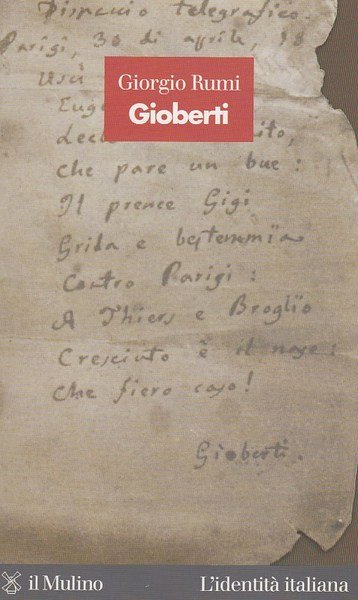 Dispaccio telegrafico.
Parigi, 30 di aprile, 18
Uscì
Giorgio Rumi
Gioberti
Euge
dell
che pare un bue:
Il prence Gigi
Grida e bestemmia
Contro Parigi:
A Thiers e Broglio
Cresciuto è il naso:
Che fiero caso!
Gioberti.
il Mulino
L'identità italiana